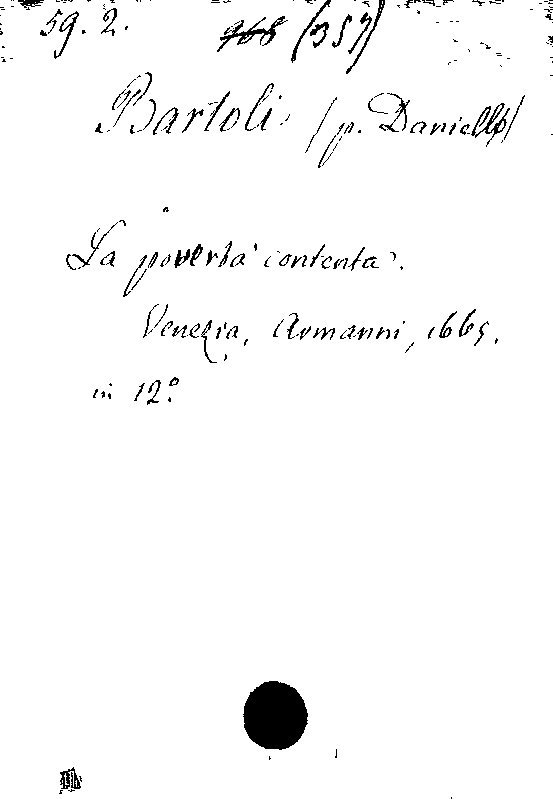 59. 2. 968 (357)
Bartoli (p. Daniello)
La povertà contenta.
Venezia, Armanni, 1665.
in 12°